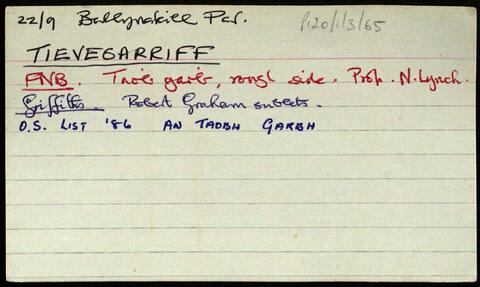 22/9 Ballynakill Par. P120/1/3/65
TIEVEGARRIFF
FNB. Taoḃ garḃ, rough side. Prop. N. Lynch.
Griffiths Robert Graham sublets.
O.S. LIST '86 AN TAOBH GARBH